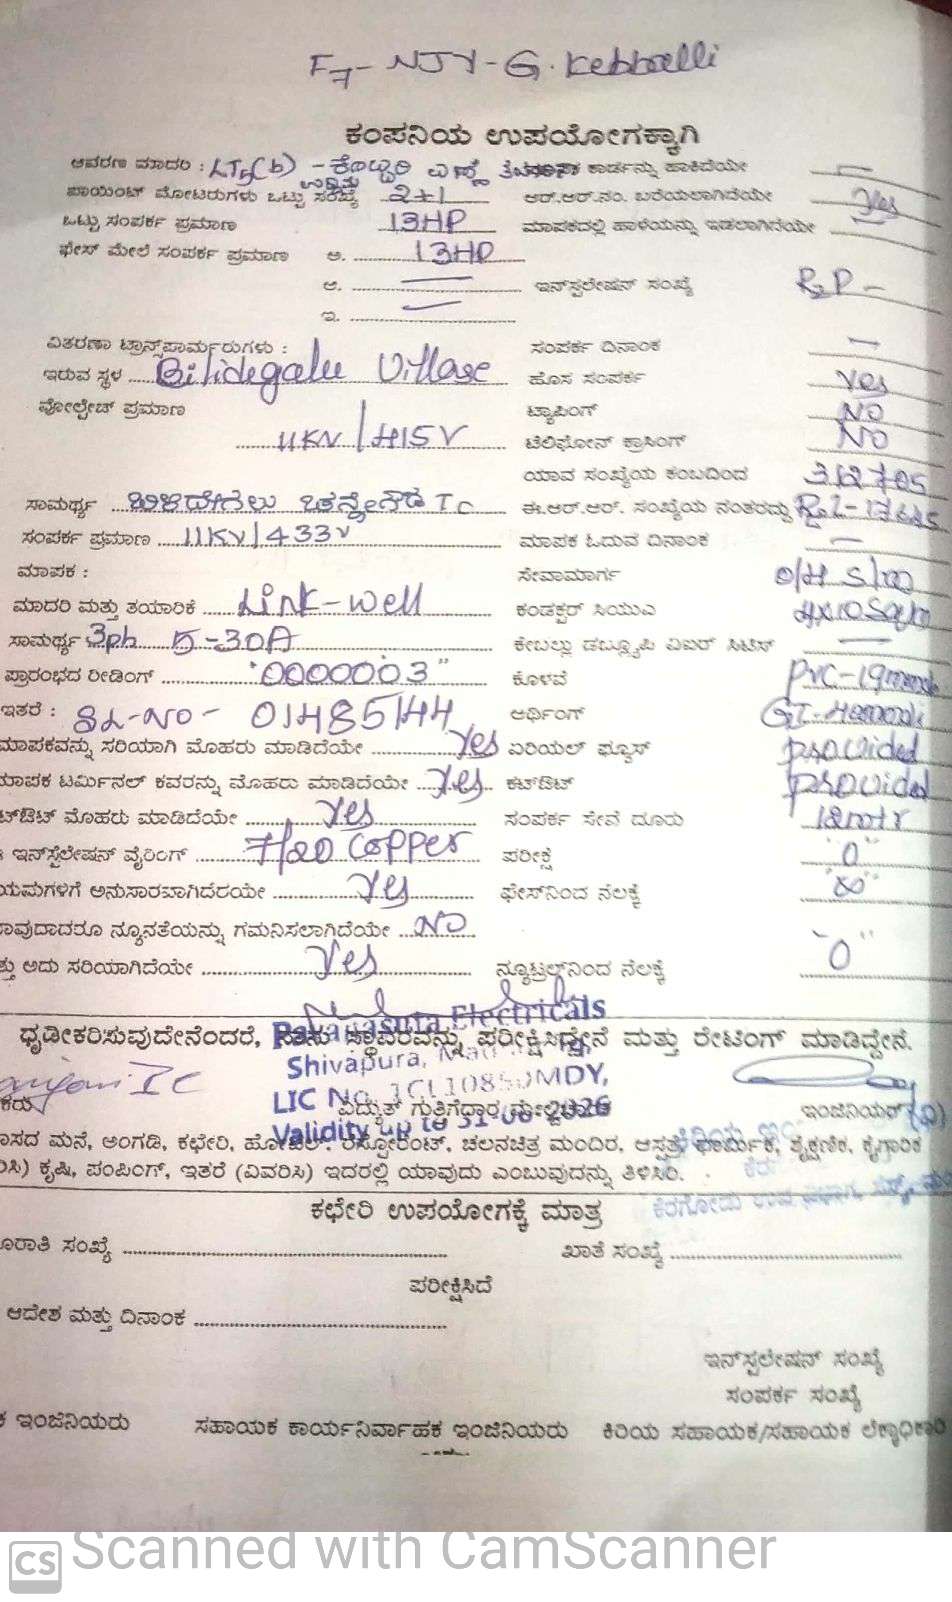 F7- NJY-G. Kebballi
ಕಂಪನಿಯ ಉಪಯೋಗಕ್ಕಾಗಿ
ಆವರಣ ಮಾದರಿ : LT5(b) - ಕಾರ್ಡನ್ನು ಹಾಕಿದೆಯೇ
ಪಾಯಿಂಟ್ ಮೋಟರುಗಳು ಒಟ್ಟು ಸಂಖ್ಯೆ 2+1 ಆರ್.ಆರ್.ನಂ. ಬರೆಯಲಾಗಿದೆಯೇ Yes
ಒಟ್ಟು ಸಂಪರ್ಕ ಪ್ರಮಾಣ 13HP ಮಾಪಕದಲ್ಲಿ ಹಾಳೆಯನ್ನು ಇಡಲಾಗಿದೆಯೇ
ಫೇಸ್ ಮೇಲೆ ಸಂಪರ್ಕ ಪ್ರಮಾಣ ಅ. 13HP
ಆ. ಇನ್‌ಸ್ಟಲೇಷನ್ ಸಂಖ್ಯೆ
ಇ.
ವಿತರಣಾ ಟ್ರಾನ್ಸ್‌ಪಾರ್ಮರುಗಳು : ಸಂಪರ್ಕ ದಿನಾಂಕ
ಇರುವ ಸ್ಥಳ Bilidegalu Village ಹೊಸ ಸಂಪರ್ಕ Yes
ವೋಲ್ಟೇಜ್ ಪ್ರಮಾಣ ಟ್ಯಾಪಿಂಗ್ NO
11KV/415V ಟೆಲಿಫೋನ್ ಕ್ರಾಸಿಂಗ್ NO
ಯಾವ ಸಂಖ್ಯೆಯ ಕಂಬದಿಂದ
ಸಾಮರ್ಥ್ಯ ಬಿಳಿದೇಗಲು TC ಈ.ಆರ್.ಆರ್. ಸಂಖ್ಯೆಯ ನಂತರದ್ದು
ಸಂಪರ್ಕ ಪ್ರಮಾಣ 11KV/433V ಮಾಪಕ ಓದುವ ದಿನಾಂಕ
ಮಾಪಕ : ಸೇವಾಮಾರ್ಗ O/H
ಮಾದರಿ ಮತ್ತು ತಯಾರಿಕೆ Link-well ಕಂಡಕ್ಟರ್ ಸಿಯುಎ
ಸಾಮರ್ಥ್ಯ 3ph 5-30A ಕೇಬಲ್ಲು ಡಬ್ಲ್ಯೂಪಿ ಎಐಆರ್ ಸಿಟಿಸ್
ಪ್ರಾರಂಭದ ರೀಡಿಂಗ್ "0000003" ಕೊಳವೆ PVC-19mm
ಇತರೆ : SL-NO- 01485144 ಅರ್ಥಿಂಗ್
ಮಾಪಕವನ್ನು ಸರಿಯಾಗಿ ಮೊಹರು ಮಾಡಿದೆಯೇ Yes ಏರಿಯಲ್ ಫ್ಯೂಸ್ provided
ಮಾಪಕ ಟರ್ಮಿನಲ್ ಕವರನ್ನು ಮೊಹರು ಮಾಡಿದೆಯೇ Yes ಕಟ್‌ಔಟ್ provided
ಟ್‌ಔಟ್ ಮೊಹರು ಮಾಡಿದೆಯೇ Yes ಸಂಪರ್ಕ ಸೇವೆ ದೂರು 12mtr
ಇನ್‌ಸ್ಟಲೇಷನ್ ವೈರಿಂಗ್ 7/20 copper ಪರೀಕ್ಷೆ "0"
ಯಮಗಳಿಗೆ ಅನುಸಾರವಾಗಿದೆಯೇ Yes ಫೇಸ್‌ನಿಂದ ನೆಲಕ್ಕೆ
ಾವುದಾದರೂ ನ್ಯೂನತೆಯನ್ನು ಗಮನಿಸಲಾಗಿದೆಯೇ NO
ತ್ತು ಅದು ಸರಿಯಾಗಿದೆಯೇ Yes ನ್ಯೂಟ್ರಲ್‌ನಿಂದ ನೆಲಕ್ಕೆ "0"
Electricals
ಧೃಡೀಕರಿಸುವುದೇನೆಂದರೆ, ನಾನು ಸ್ಥಾವರವನ್ನು ಪರೀಕ್ಷಿಸಿದ್ದೇನೆ ಮತ್ತು ರೇಟಿಂಗ್ ಮಾಡಿದ್ದೇನೆ.
Shivapura,
LIC No.
ಕರು ವಿದ್ಯುತ್ ಗುತ್ತಿಗೆದ್ದಾರ ಇಂಜಿನಿಯರ್
Validity up to 31-08-2026
ಾಸದ ಮನೆ, ಅಂಗಡಿ, ಕಛೇರಿ, ಹೋಟೆಲ್, ರೆಸ್ಟೋರೆಂಟ್, ಚಲನಚಿತ್ರ ಮಂದಿರ, ಆಸ್ಪತ್ರೆ, ಧಾರ್ಮಿಕ, ಶೈಕ್ಷಣಿಕ, ಕೈಗಾರಿಕ
ರಿಸಿ) ಕೃಷಿ, ಪಂಪಿಂಗ್, ಇತರೆ (ವಿವರಿಸಿ) ಇದರಲ್ಲಿ ಯಾವುದು ಎಂಬುವುದನ್ನು ತಿಳಿಸಿರಿ.
ಕಛೇರಿ ಉಪಯೋಗಕ್ಕೆ ಮಾತ್ರ
ೂರಾತಿ ಸಂಖ್ಯೆ ಖಾತೆ ಸಂಖ್ಯೆ
ಪರೀಕ್ಷಿಸಿದೆ
ಆದೇಶ ಮತ್ತು ದಿನಾಂಕ
ಇನ್‌ಸ್ಟಲೇಷನ್ ಸಂಖ್ಯೆ
ಸಂಪರ್ಕ ಸಂಖ್ಯೆ
ಕ ಇಂಜಿನಿಯರು ಸಹಾಯಕ ಕಾರ್ಯನಿರ್ವಾಹಕ ಇಂಜಿನಿಯರು ಕಿರಿಯ ಸಹಾಯಕ/ಸಹಾಯಕ ಲೆಕ್ಕಾಧಿಕಾರಿ
CS Scanned with CamScanner